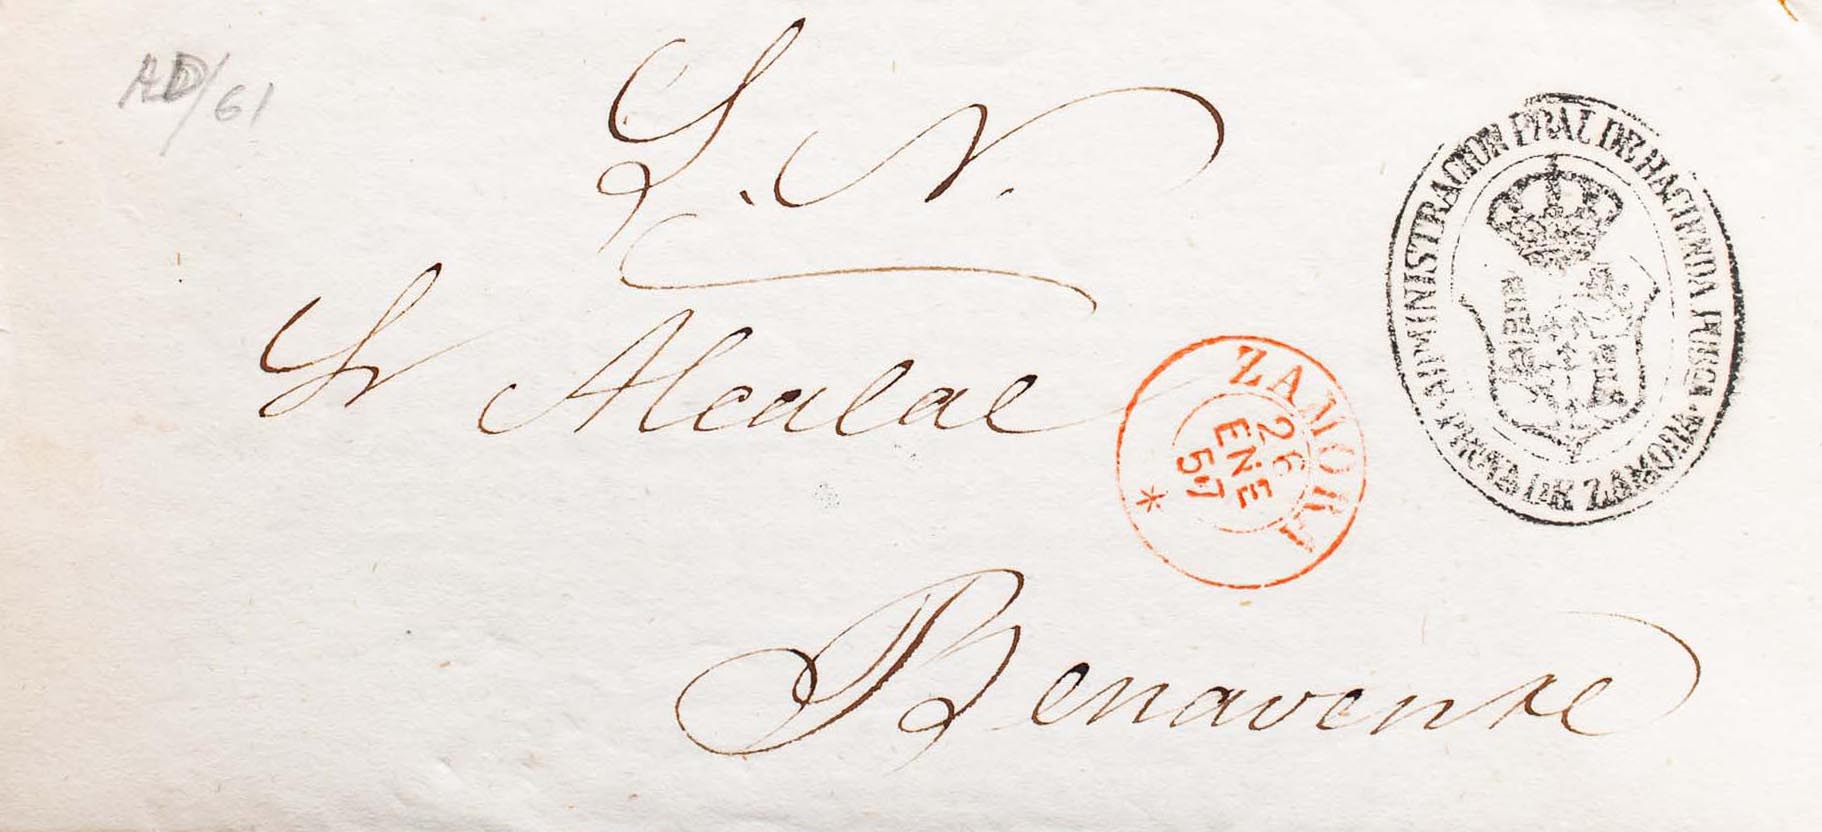 AD/61
S. N.
Sr Alcalde
Benavente
ZAMORA
26
ENE
57
*
ADMINISTRACION PRAL DE HACIENDA PUBLICA
PROVA DE ZAMORA